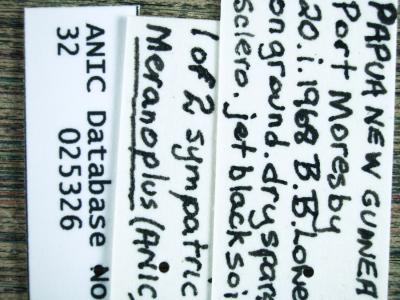 PAPUA NEW GUINEA
Port Moresby
20.i.1968 B.B. Lowe
on ground. dry
sclero. jet black
1 of 2 sympatric
Meranoplus (ANIC
ANIC Database No
32 025326